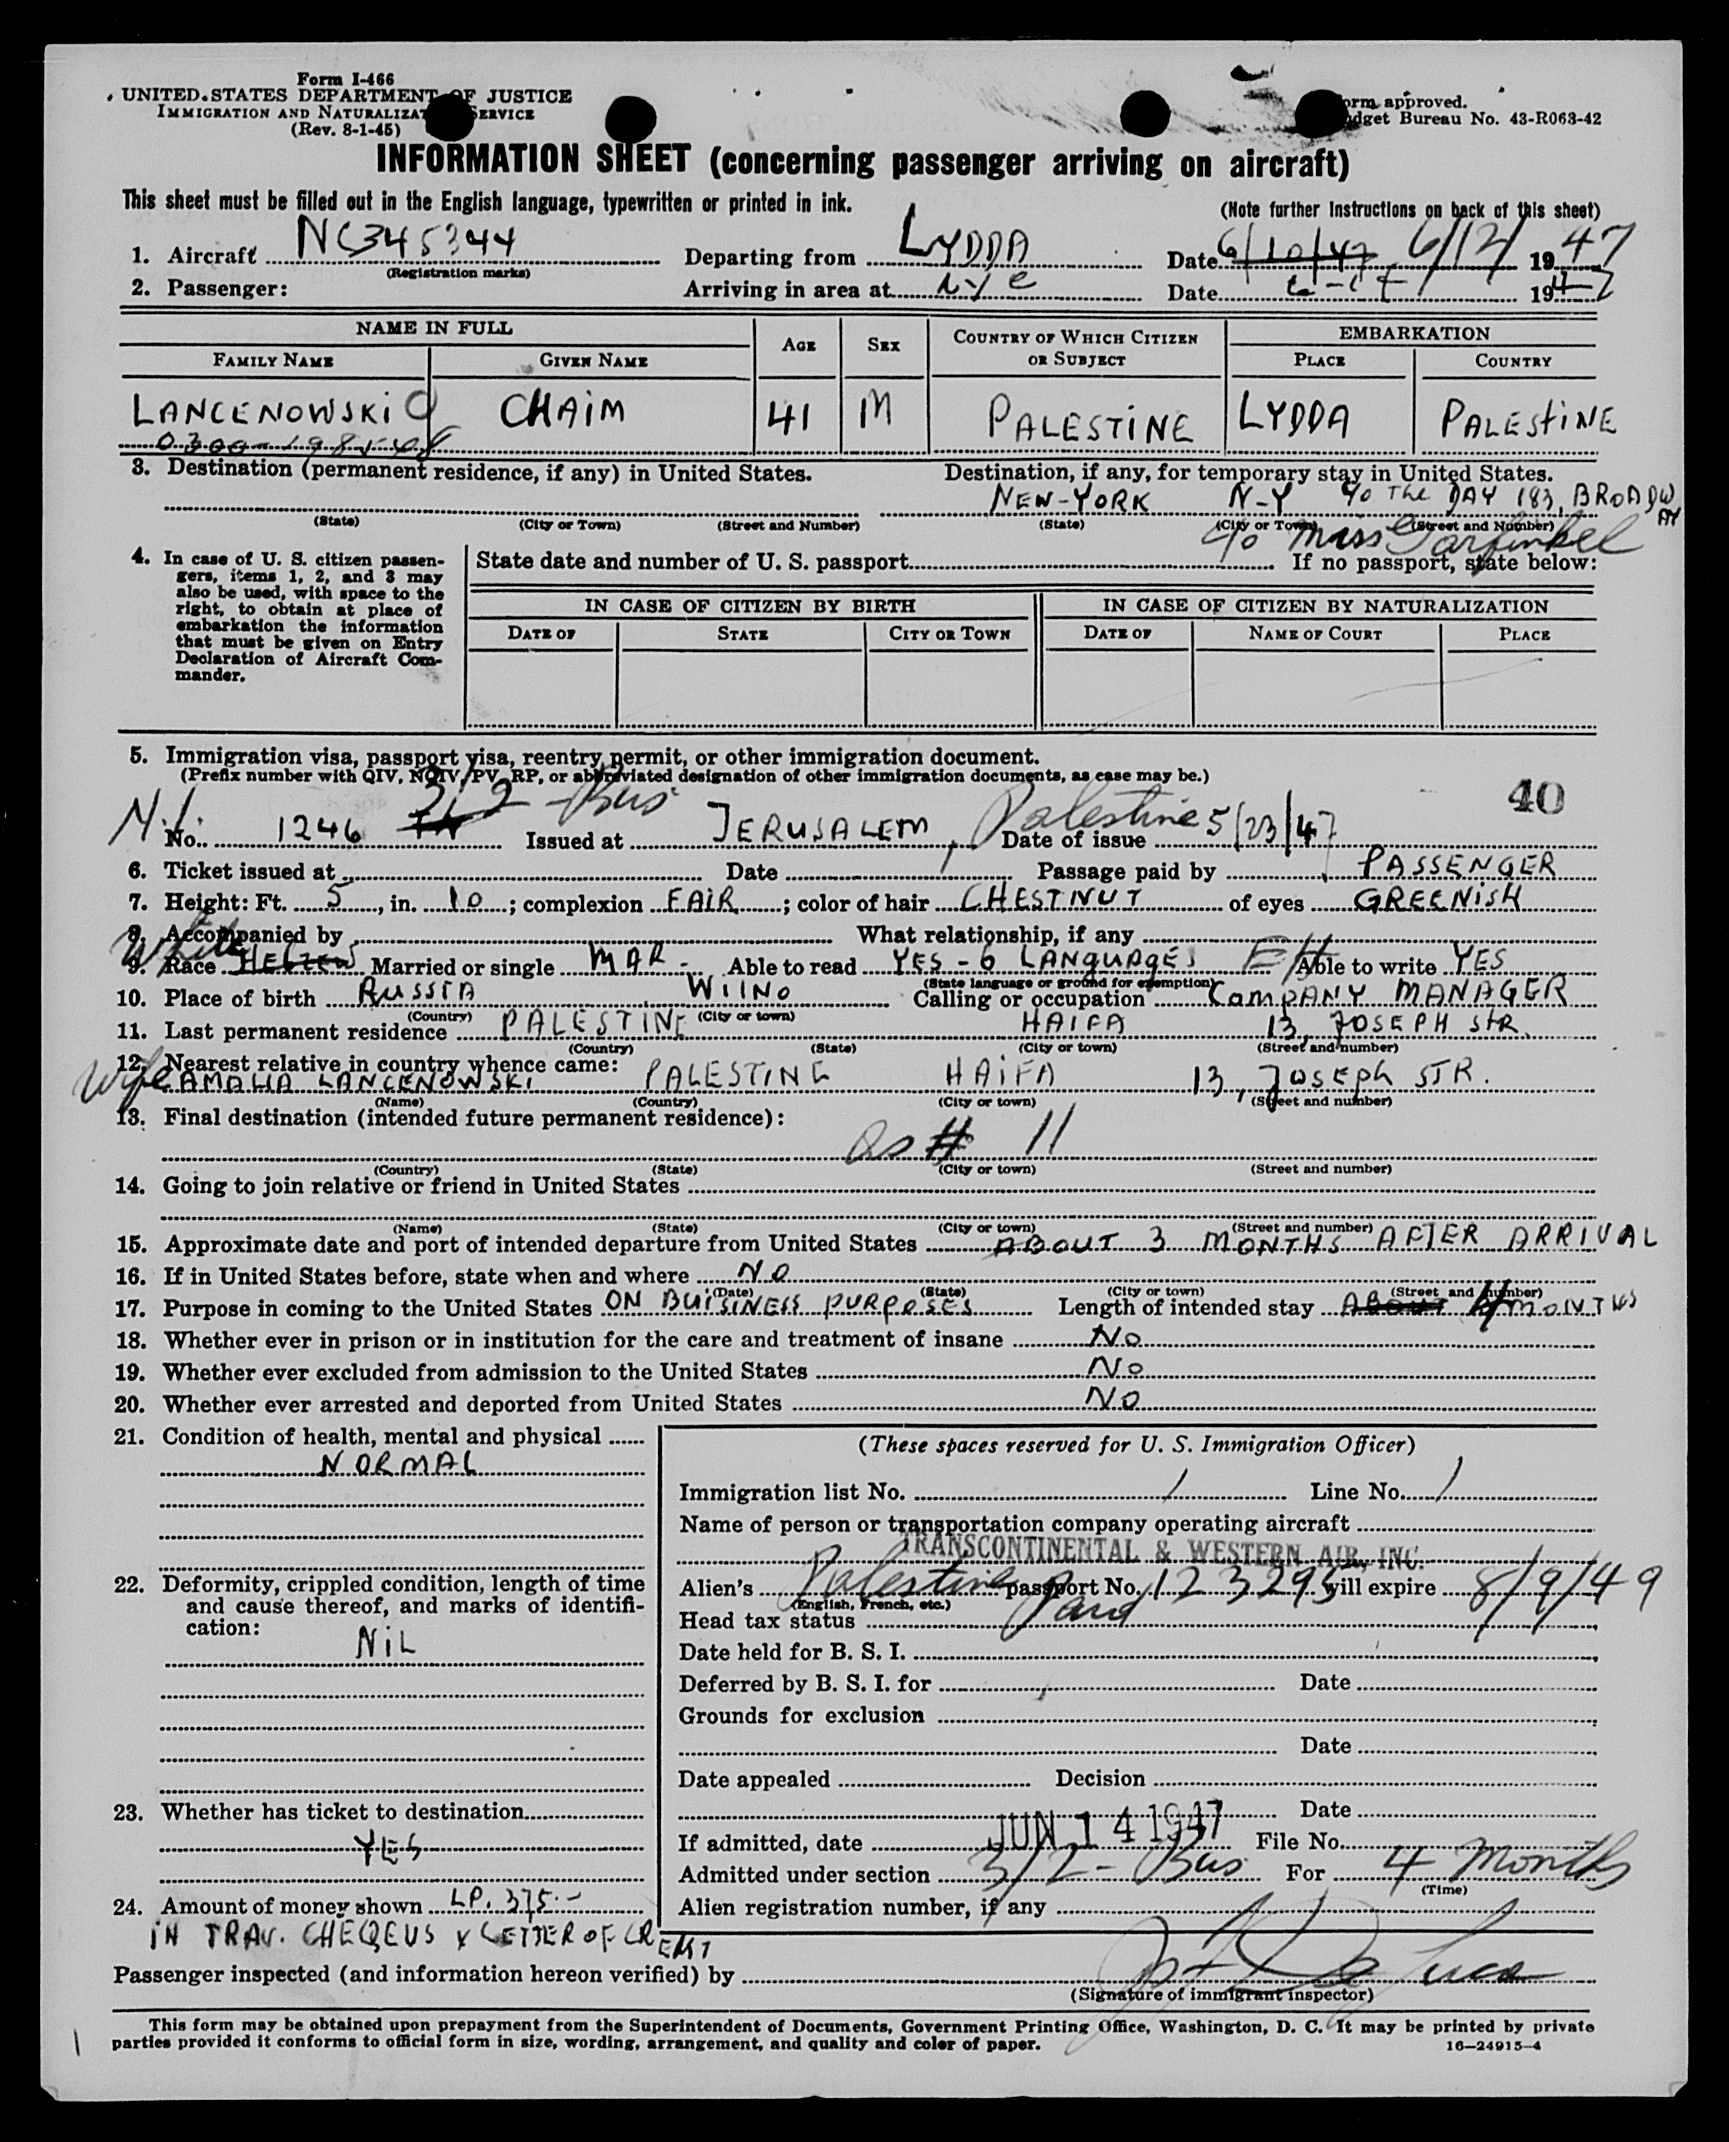 Form I-466
UNITED STATES DEPARTMENT OF JUSTICE
IMMIGRATION AND NATURALIZATION SERVICE
(Rev. 8-1-45)
Form approved.
Budget Bureau No. 43-R063-42
INFORMATION SHEET (concerning passenger arriving on aircraft)
This sheet must be filled out in the English language, typewritten or printed in ink.
(Note further instructions on back of this sheet)
1. Aircraft NC345344 Departing from LYDDA Date 6/10/47 6/12/ 1947
(Registration marks)
2. Passenger: Arriving in area at NYC Date 1947
NAME IN FULL AGE SEX COUNTRY OF WHICH CITIZEN OR SUBJECT EMBARKATION
FAMILY NAME GIVEN NAME PLACE COUNTRY
LANCENOWSKI CHAIM 41 M PALESTINE LYDDA PALESTINE
3. Destination (permanent residence, if any) in United States. Destination, if any, for temporary stay in United States.
NEW-YORK N-Y c/o The DAY 183, BROADWAY
(State) (City or Town) (Street and Number) (State) (City or Town) (Street and Number)
c/o Miss Garfinkel
4. In case of U. S. citizen passengers, items 1, 2, and 3 may also be used, with space to the right, to obtain at place of embarkation the information that must be given on Entry Declaration of Aircraft Commander.
State date and number of U. S. passport If no passport, state below:
IN CASE OF CITIZEN BY BIRTH IN CASE OF CITIZEN BY NATURALIZATION
DATE OF STATE CITY OR TOWN DATE OF NAME OF COURT PLACE
5. Immigration visa, passport visa, reentry permit, or other immigration document.
(Prefix number with QIV, NQIV, PV, RP, or abbreviated designation of other immigration documents, as case may be.)
40
3/2 - Bus
No. 1246 Issued at JERUSALEM, Palestine Date of issue 5/23/47
6. Ticket issued at Date Passage paid by PASSENGER
7. Height: Ft. 5, in. 10; complexion FAIR; color of hair CHESTNUT of eyes GREENISH
8. Accompanied by What relationship, if any
White
9. Race Married or single MAR- Able to read YES - 6 LANGUAGES Able to write YES
(State language or ground for exemption)
10. Place of birth RUSSIA WILNO Calling or occupation COMPANY MANAGER
(Country) (City or town)
11. Last permanent residence PALESTINE HAIFA 13, JOSEPH STR.
(Country) (State) (City or town) (Street and number)
12. Nearest relative in country whence came:
Wife AMALIA LANCENOWSKI PALESTINE HAIFA 13, JOSEPH STR.
(Name) (Country) (City or town) (Street and number)
13. Final destination (intended future permanent residence):
as # 11
(Country) (State) (City or town) (Street and number)
14. Going to join relative or friend in United States
(Name) (State) (City or town) (Street and number)
15. Approximate date and port of intended departure from United States ABOUT 3 MONTHS AFTER ARRIVAL
16. If in United States before, state when and where NO
(Date) (State) (City or town) (Street and number)
17. Purpose in coming to the United States ON BUISINESS PURPOSES Length of intended stay ABOUT 4 MONTHS
18. Whether ever in prison or in institution for the care and treatment of insane NO
19. Whether ever excluded from admission to the United States NO
20. Whether ever arrested and deported from United States NO
21. Condition of health, mental and physical
NORMAL
22. Deformity, crippled condition, length of time and cause thereof, and marks of identification:
NIL
23. Whether has ticket to destination
YES
24. Amount of money shown LP. 375.-
IN TRAV. CHEQEUS & LETTER OF CREDIT
(These spaces reserved for U. S. Immigration Officer)
Immigration list No. 1 Line No. 1
Name of person or transportation company operating aircraft
TRANSCONTINENTAL & WESTERN AIR, INC.
Alien's Palestine passport No. 123293 will expire 8/9/49
(English, French, etc.)
Head tax status Paid
Date held for B. S. I.
Deferred by B. S. I. for Date
Grounds for exclusion
Date
Date appealed Decision
Date
If admitted, date JUN 14 1947 File No.
Admitted under section 3/2 - Bus For 4 Months
(Time)
Alien registration number, if any
Passenger inspected (and information hereon verified) by
(Signature of immigrant inspector)
This form may be obtained upon prepayment from the Superintendent of Documents, Government Printing Office, Washington, D. C. It may be printed by private
parties provided it conforms to official form in size, wording, arrangement, and quality and color of paper.
16—24915-4